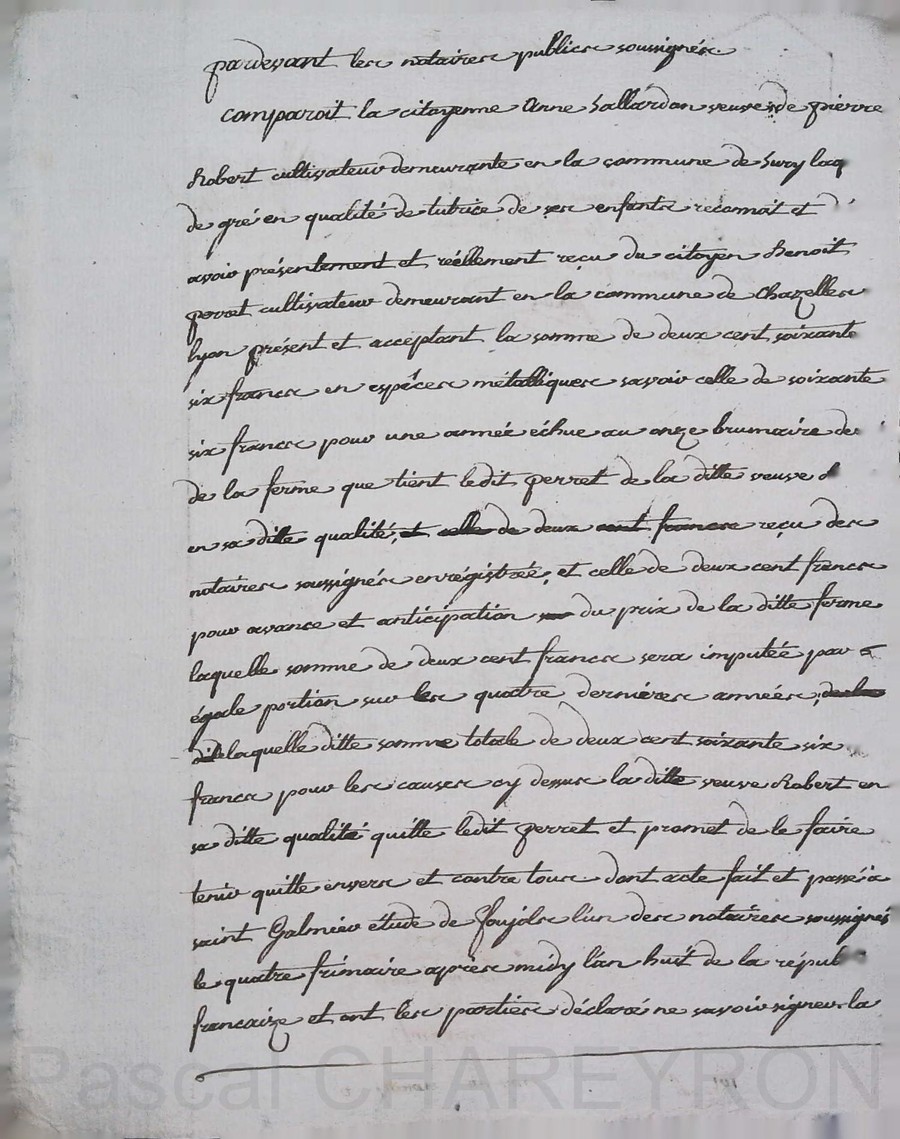 pardevant les notaires publics soussignés
comparoit la citoyenne Anne Sallardon veuve de pierre
Robert cultivateur demeurante en la commune de Sury laq
de gré en qualité de tutrice de ses enfants reconnoit et
avoir présentement et réellement reçu du citoyen Benoit
perret cultivateur demeurant en la commune de Chazelles
lyon présent et acceptant la somme de deux cent soixante
six francs en espéces métalliques savoir celle de soixante
six francs pour une année échue au onze brumaire de
de la ferme que tient ledit perret de la ditte veuve
en sa ditte qualité, et celle de deux cent francs reçu des
notaires soussignés enrégistrée, et celle de deux cent francs
pour avance et anticipation du prix de la ditte ferme
laquelle somme de deux cent francs sera imputée par
égale portion sur les quatre derniéres années, de la
dite laquelle ditte somme totale de deux cent soixante six
francs pour les causes cy dessus la ditte veuve Robert en
sa ditte qualité quitte ledit perret et promet de le faire
tenir quitte envers et contre tous dont acte fait et passé à
saint Galmier étude de foujols l'un des notaires soussignés
le quatre frimaire après midy l'an huit de la répub
francaize et ont les parties déclaré ne savoir signer la
Pascal CHAREYRON